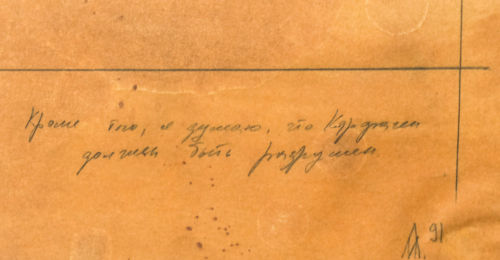 Кроме того, я думаю, что Карфаген
должен быть разрушен
91